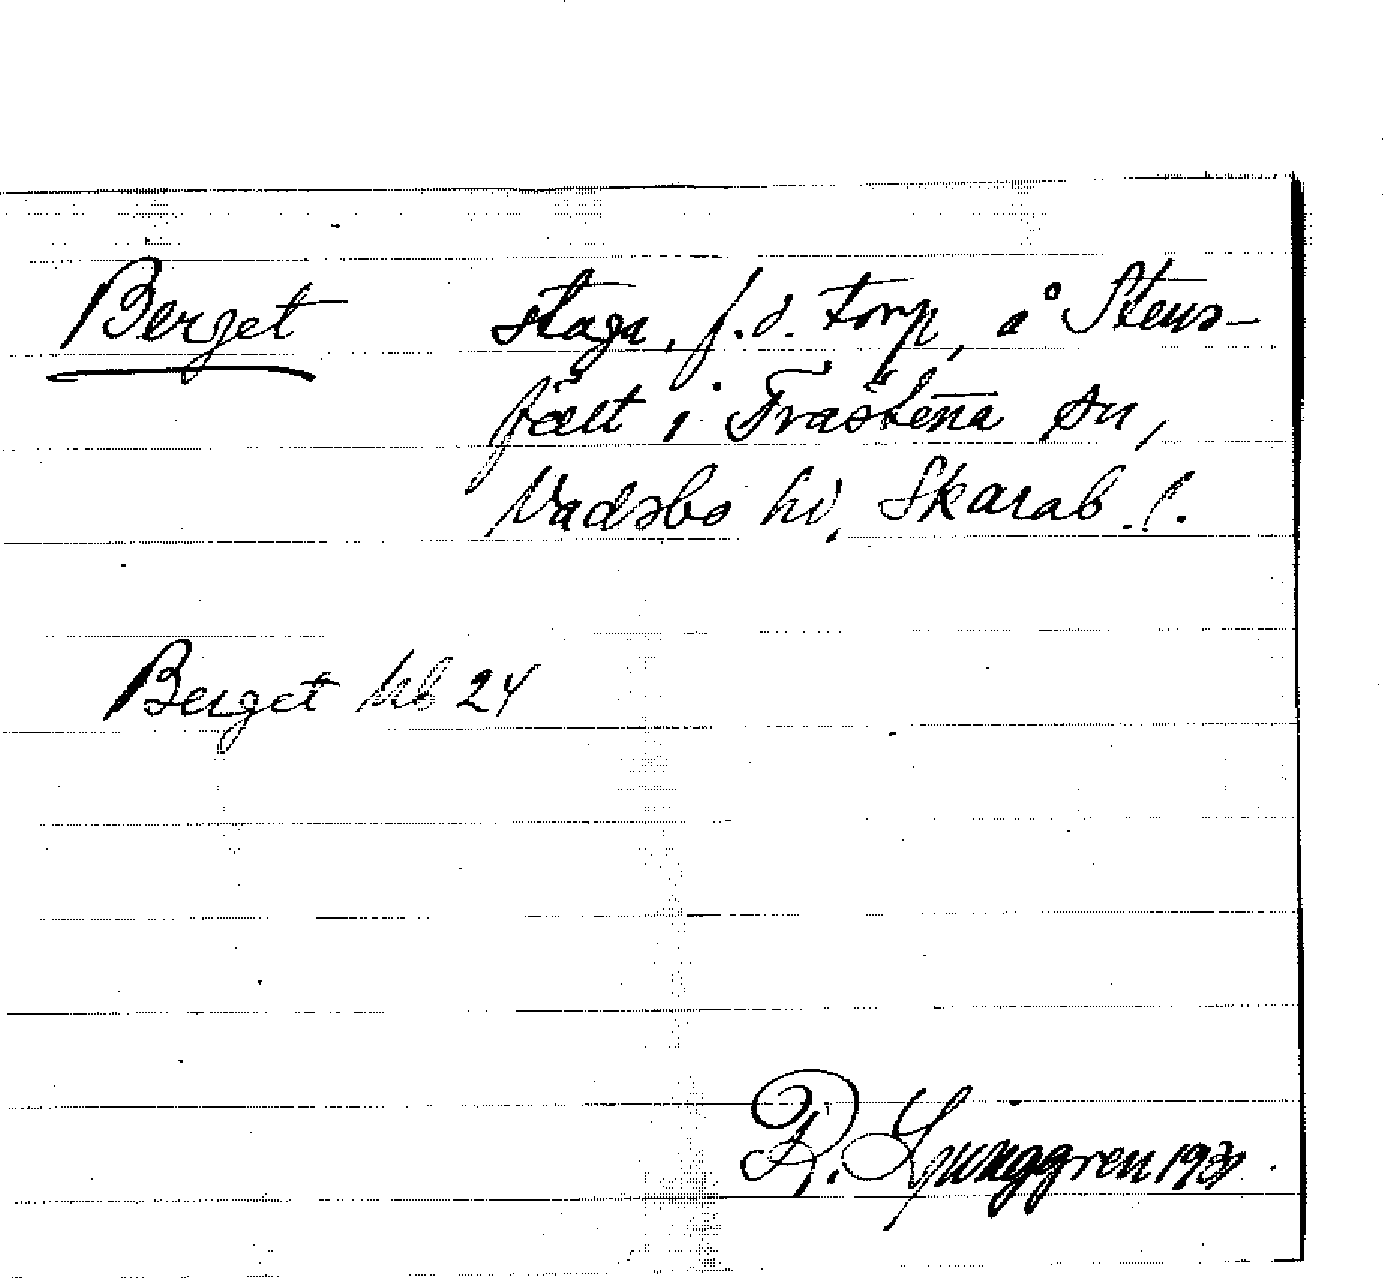 Berget stuga, f.d. torp, å Stens-
fält i Trästena sn,
Vadsbo hd, Skarab. l.
Berget kb 24
R. Ljunggren 1931.